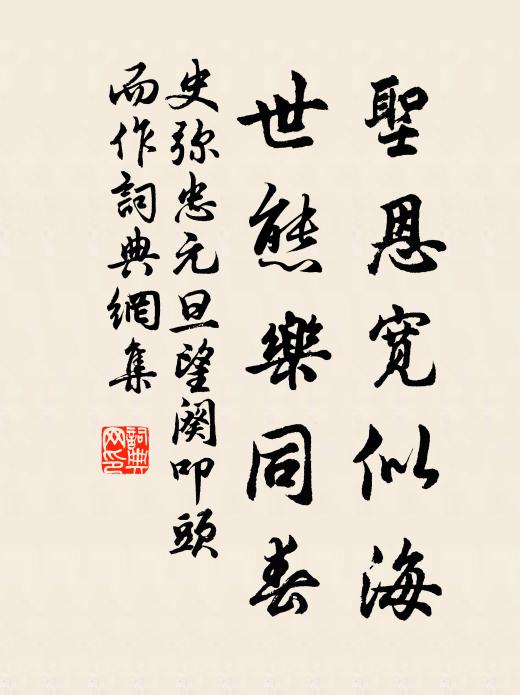 聖恩寬似海
世態樂同春
史弥忠元旦望闕叩頭
而作詞典網集
詞典网印